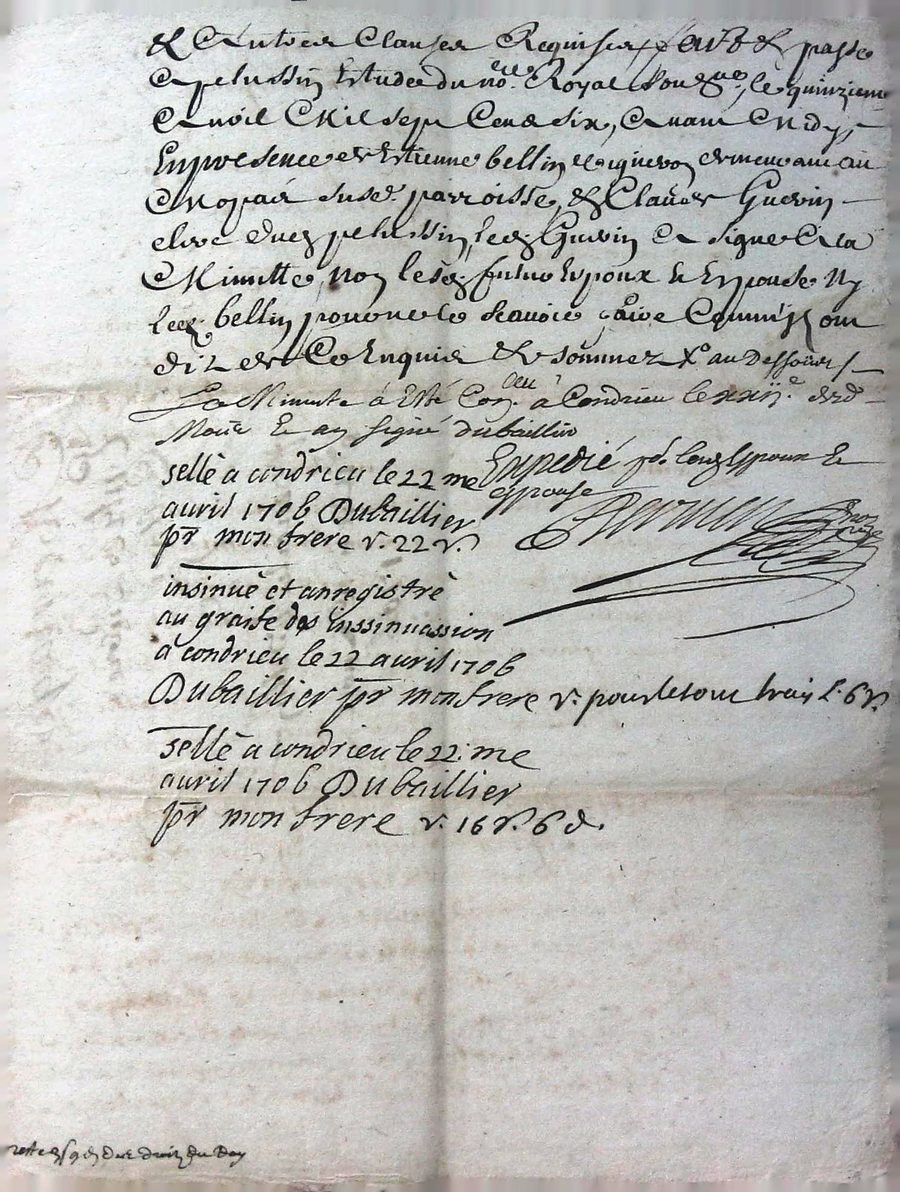 & autres clauses Requises, fait & passé
a pelussin Estude du no.re Royal soug.né, le quinzieme
avril Mil sept Cens six, avant Midy,
En presence de Estienne bellin vigneron demeurant au
susd. parroisse, & Claude Guerin
clerc dud pelussin, led Guerin a signé a la
Minutte, non lesd futur Espoux & Espouse ny
led. bellin pour ne le scavoir faire Comme ils ont
dit de Ce Enquis & sommez x.o au Dessous
La Minutte à Esté Con.lleu à Condrieu le xxij.e dud
Mois & an signé dubaillier
sellé a condrieu le 22 me
avril 1706 Dubaillier
pr mon frere r. 22 s.
Expedié pr. lesd Espoux &
espouse
insinué et anregistré
au graife des inssinuassion
à condrieu le 22 avril 1706
Dubaillier pr mon frere r. pour le tout trois L. 6 s.
sellé a condrieu le 22: me
avril 1706 Dubaillier
pr mon frere r. 16 s. 6 d.
droits du Roy